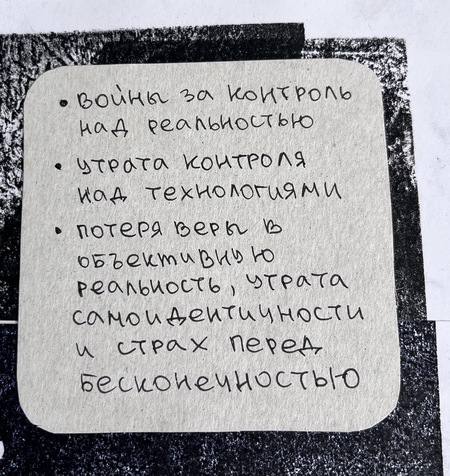 • войны за контроль
над реальностью
• утрата контроля
над технологиями
• потеря веры в
объективную
реальность, утрата
самоидентичности
и страх перед
бесконечностью